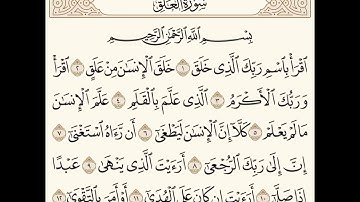 سُورَةُ العَلَق
بِسْمِ اللَّهِ الرَّحْمَٰنِ الرَّحِيمِ
ٱقْرَأْ بِٱسْمِ رَبِّكَ ٱلَّذِى خَلَقَ ١ خَلَقَ ٱلْإِنسَٰنَ مِنْ عَلَقٍ ٢ ٱقْرَأْ
وَرَبُّكَ ٱلْأَكْرَمُ ٣ ٱلَّذِى عَلَّمَ بِٱلْقَلَمِ ٤ عَلَّمَ ٱلْإِنسَٰنَ
مَا لَمْ يَعْلَمْ ٥ كَلَّآ إِنَّ ٱلْإِنسَٰنَ لَيَطْغَىٰٓ ٦ أَن رَّءَاهُ ٱسْتَغْنَىٰٓ ٧
إِنَّ إِلَىٰ رَبِّكَ ٱلرُّجْعَىٰٓ ٨ أَرَءَيْتَ ٱلَّذِى يَنْهَىٰ ٩ عَبْدًا
إِذَا صَلَّىٰٓ ١٠ أَرَءَيْتَ إِن كَانَ عَلَى ٱلْهُدَىٰٓ ١١ أَوْ أَمَرَ بِٱلتَّقْوَىٰٓ ١٢